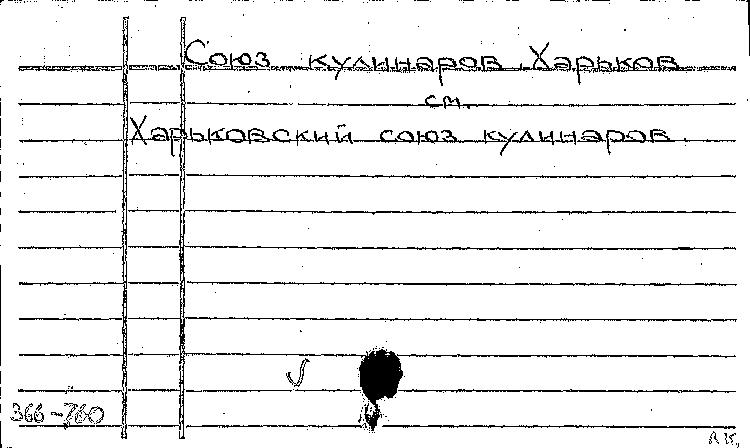 Союз кулинаров, Харьков
см.
Харьковский союз кулинаров.
366-760